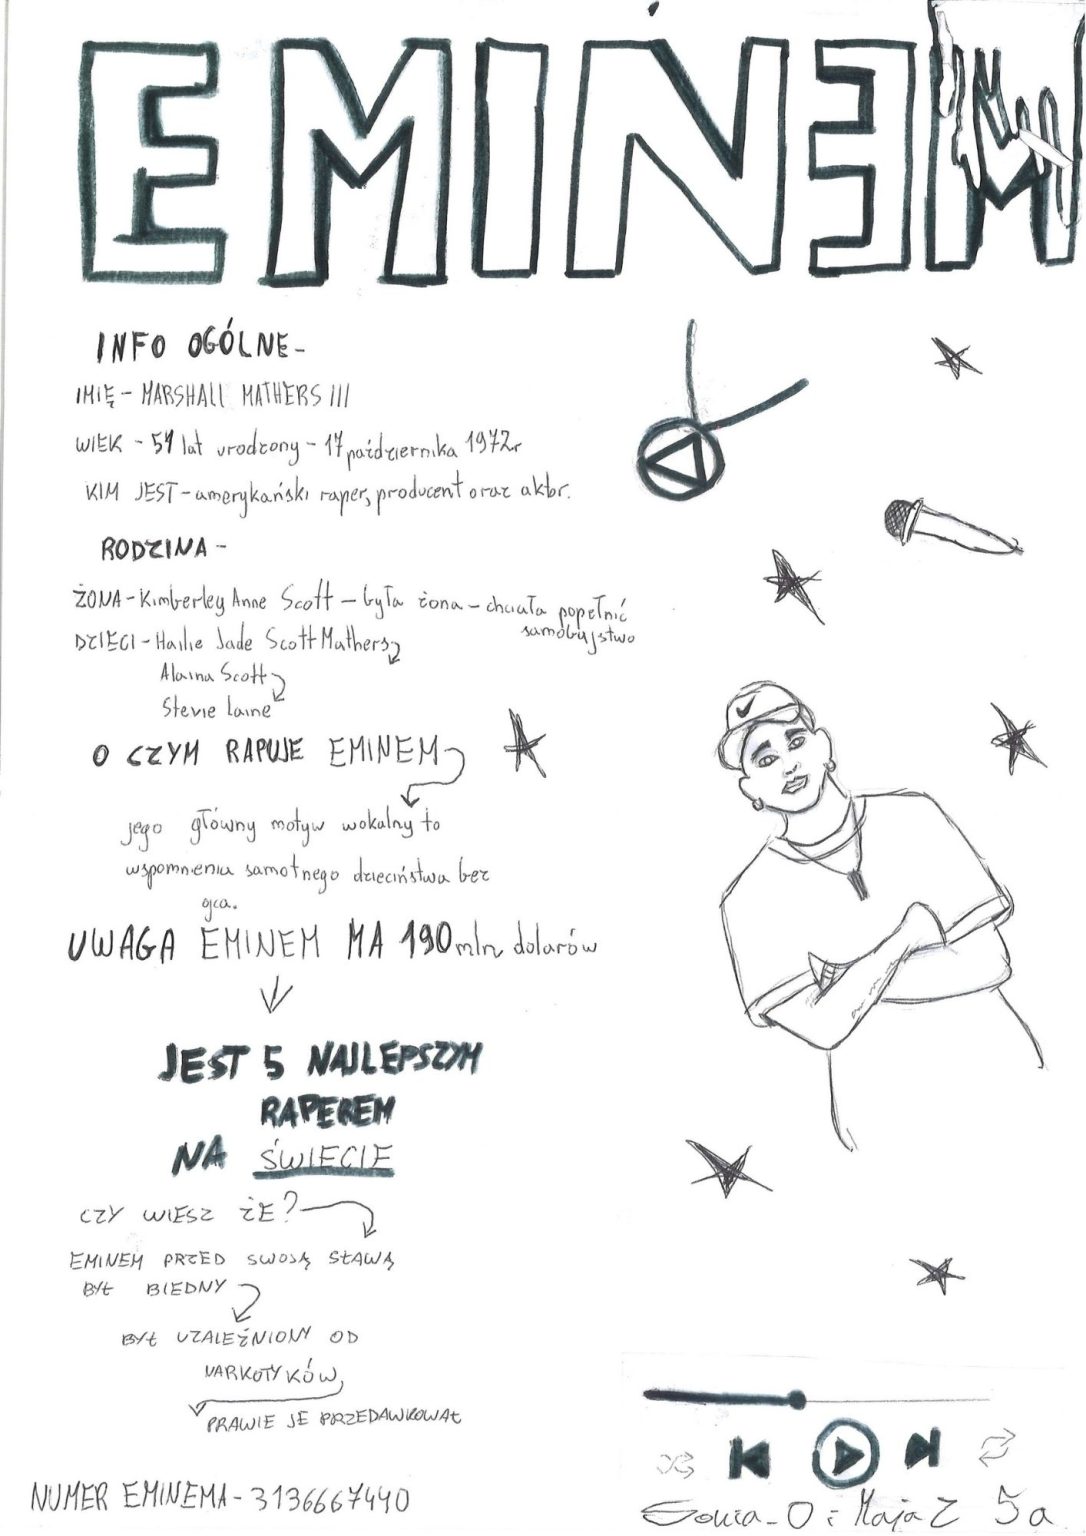 EMINƎM
INFO OGÓLNE-
IMIĘ - MARSHALL MATHERS III
WIEK - 51 lat urodzony - 17 października 1972r
KIM JEST - amerykański raper, producent oraz aktor.
RODZINA -
ŻONA - Kimberley Anne Scott - była żona - chciała popełnić
samobujstwo
DZIECI - Hailie Jade Scott Mathers
Alaina Scott
Stevie Laine
O CZYM RAPUJE EMINEM
jego główny motyw wokalny to
wspomnienia samotnego dzieciństwa bez
ojca.
UWAGA EMINEM MA 190 mln dolarów
JEST 5 NAJLEPSZYM
RAPEREM
NA ŚWIECIE
CZY WIESZ ŻE?
EMINEM PRZED SWOJĄ SŁAWĄ
BYŁ BIEDNY
BYŁ UZALEŹNIONY OD
NARKOTYKÓW,
PRAWIE JE PRZEDAWKOWAŁ
NUMER EMINEMA - 3136667440
Sonia_O i Maja Z 5a